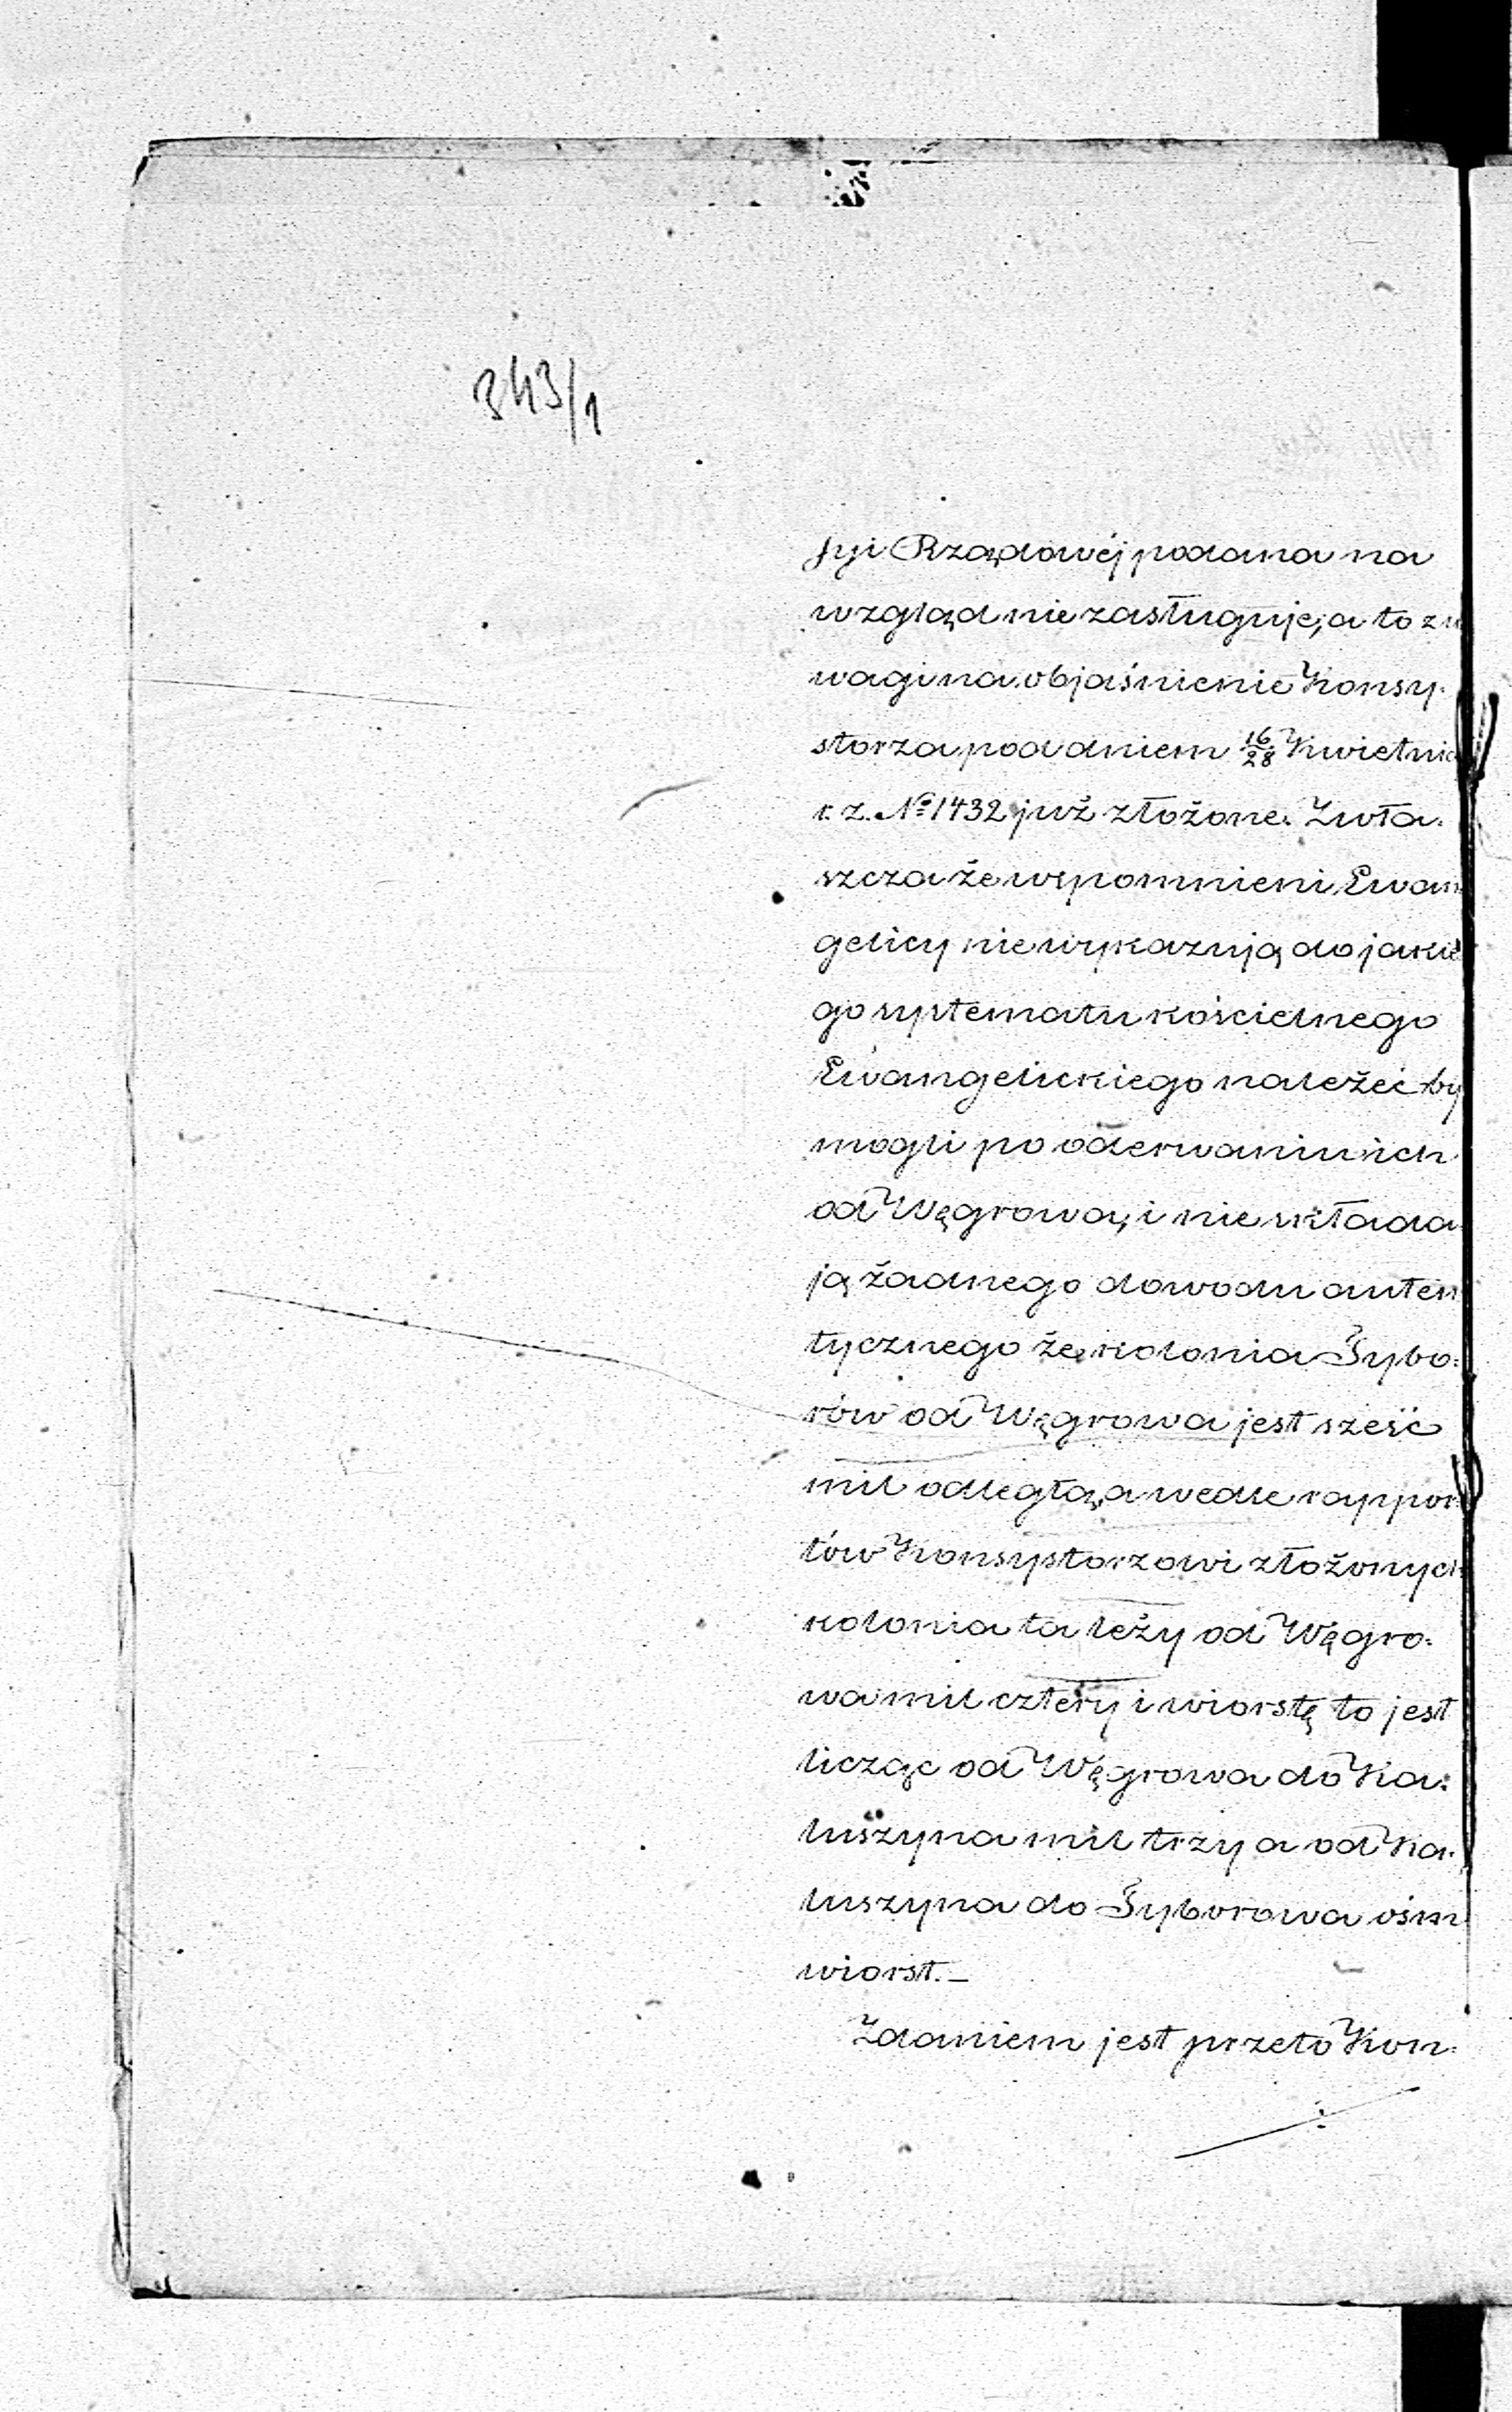 343/1
syi Rządowéj podana na
wzgląd nie zasługuje, a to z u
wagi na objaśnienie Konsy-
storza pod dniem 16/28 Kwietnia
r. z. № 1432 już złożone. Zwła-
szcza że wspomnieni Ewan
gelicy nie wykazują do jakie
go systematu kościelnego
Ewangelickiego należeć by
mogli po oderwaniu ich
od Węgrowa, i nie składa
ją żadnego dowodu auten
tycznego że kolonia Sybo-
rów od Węgrowa jest sześć
mil odległą, a wedle rappor
tów Konsystorzowi złożonych
kolonia ta leży od Węgro-
wa mil cztery i wiorstę to jest
licząc od Węgrowa do Ka-
luszyna mil trzy a od Ka-
luszyna do Syborowa ośm
wiorst. _
Zdaniem jest przeto Kon-